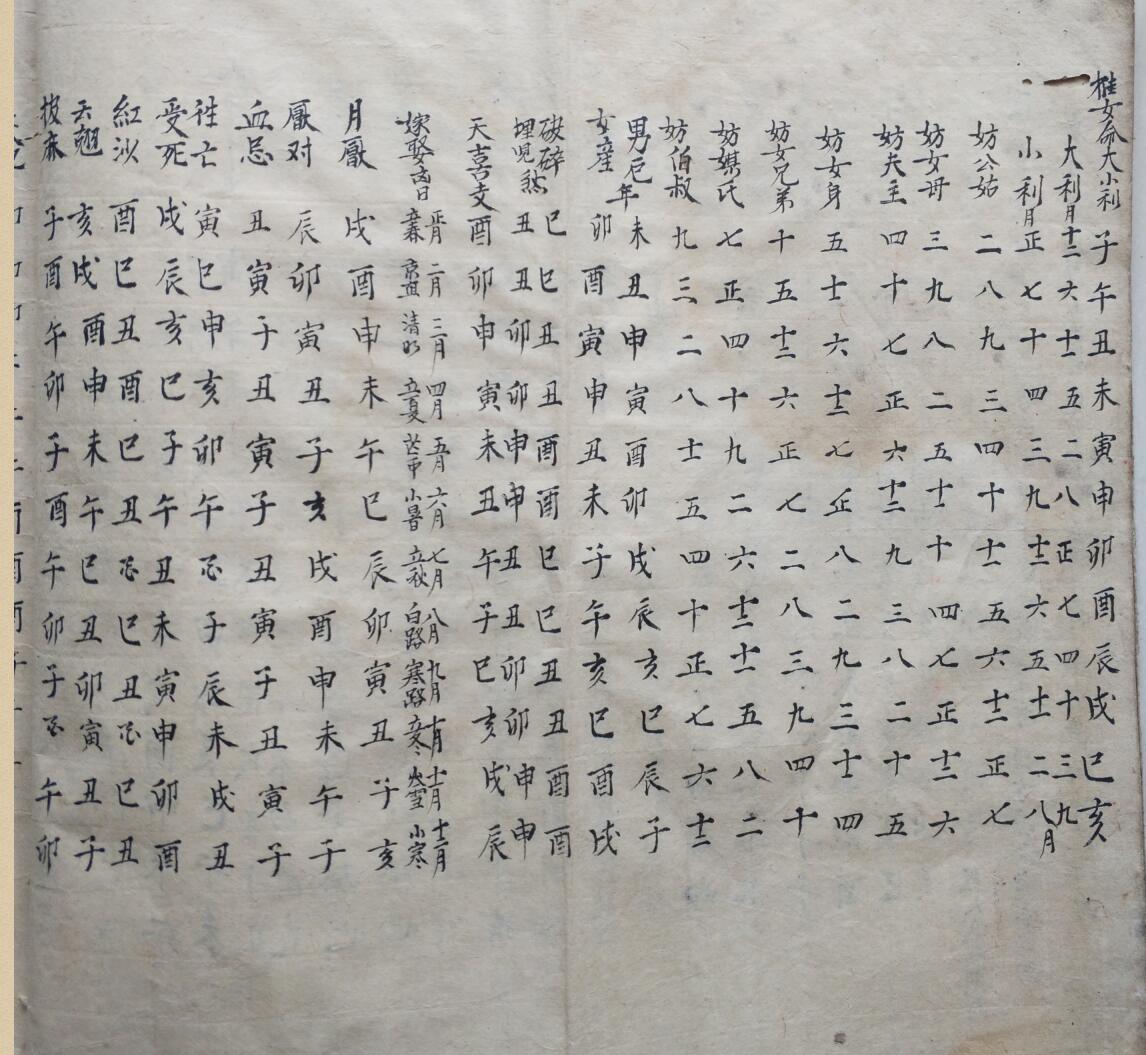 推女命大小利子午丑未寅申卯酉辰戌巳亥
大利月十二六十一五二八正七四十三九
小利月正七十四三九十二六五十一二八月
妨公姑二八九三四十十一五六十二正七
妨女母三九八二五十一十四七正十二六
妨夫主四十七正六十二九三八二十一五
妨女身五十一六十二七正八二九三十四
妨女兄弟十五十二六正七二八三九四十
妨媒氏七正四十九二六十二十一五八二
妨伯叔九三二八十一五四十正七六十二
男厄年未丑申寅酉卯戌辰亥巳辰子
女産卯酉寅申丑未子午亥巳酉戌
破碎巳巳丑丑酉酉巳巳丑丑酉酉
埋児煞丑丑卯卯申申丑丑卯卯申申
天喜支酉卯申寅未丑午子巳亥戌辰
嫁娶周日
正月二月三月四月五月六月七月八月九月十月十一月十二月
立春惊蛰清明立夏芒种小暑立秋白路寒路立冬大雪小寒
月厭戌酉申未午巳辰卯寅丑子亥
厭对辰卯寅丑子亥戌酉申未午子
血忌丑寅子丑寅子丑寅子丑寅子
往亡寅巳申亥卯午酉子辰未戌丑
受死戌辰亥巳子午丑未寅申卯酉
紅沙酉巳丑酉巳丑酉巳丑酉巳丑
天翘亥戌酉申未午巳丑卯寅丑子
披麻子酉午卯子酉午卯子酉午卯